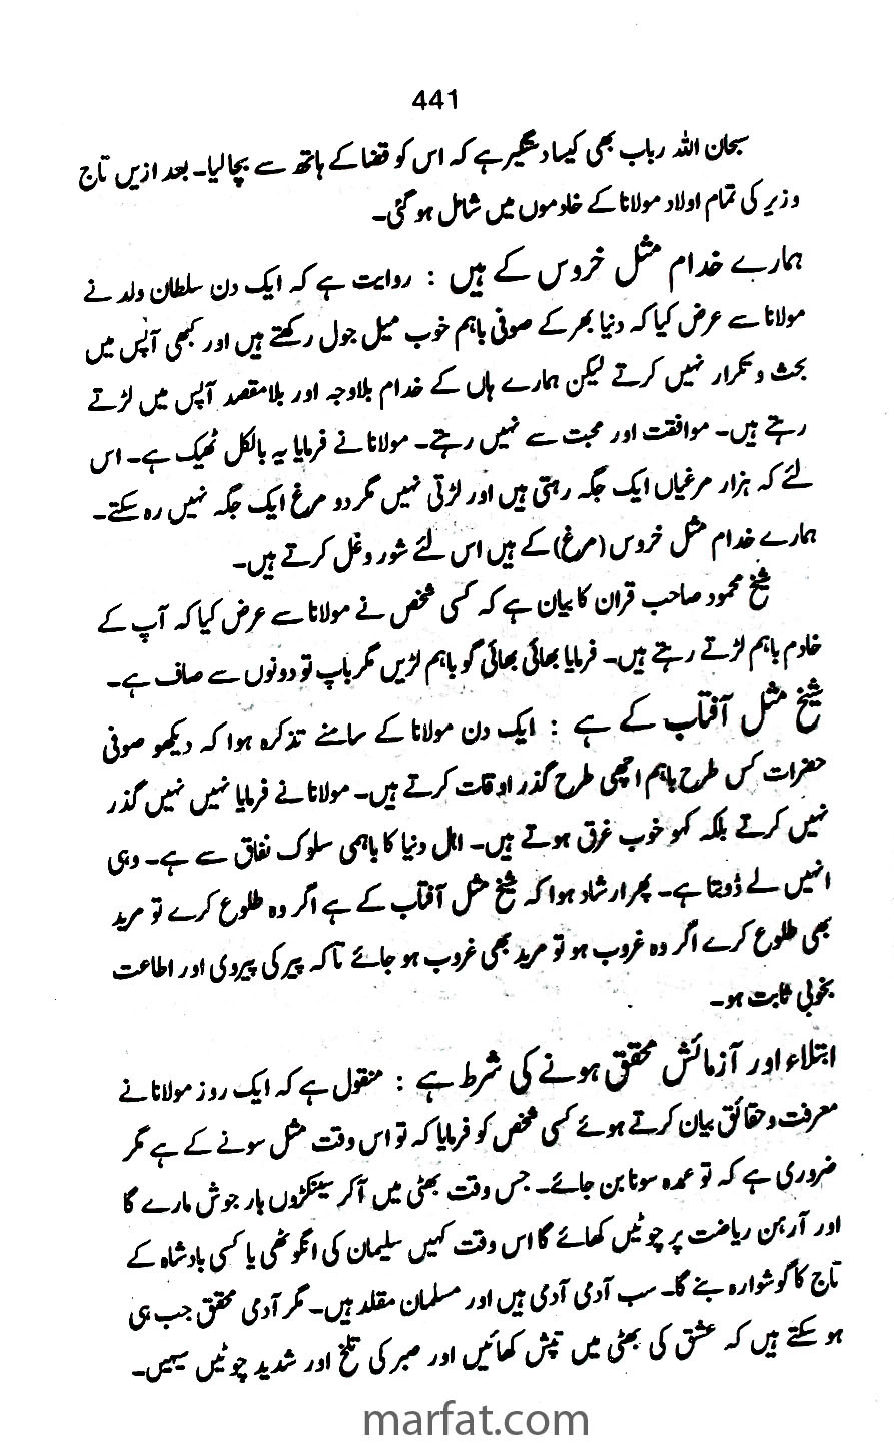 441
سبحان اللہ رباب بھی کیسا دستگیر ہے کہ اس کو قضا کے ہاتھ سے بچالیا۔ بعد ازیں تاج
وزیر کی تمام اولاد مولانا کے خادموں میں شامل ہو گئی۔
ہمارے خدام مثل خروس کے ہیں : روایت ہے کہ ایک دن سلطان ولد نے
مولانا سے عرض کیا کہ دنیا بھر کے صوفی باہم خوب میل جول رکھتے ہیں اور کبھی آپس میں
بحث و تکرار نہیں کرتے لیکن ہمارے ہاں کے خدام بلاوجہ اور بلامقصد آپس میں لڑتے
رہتے ہیں۔ موافقت اور محبت سے نہیں رہتے۔ مولانا نے فرمایا یہ بالکل ٹھیک ہے۔ اس
لئے کہ ہزار مرغیاں ایک جگہ رہتی ہیں اور لڑتی نہیں مگر دو مرغ ایک جگہ نہیں رہ سکتے۔
ہمارے خدام مثل خروس (مرغ) کے ہیں اس لئے شور و غل کرتے ہیں۔
شیخ محمود صاحب قران کا بیان ہے کہ کسی شخص نے مولانا سے عرض کیا کہ آپ کے
خادم باہم لڑتے رہتے ہیں۔ فرمایا بھائی بھائی گو باہم لڑیں مگر باپ تو دونوں سے صاف ہے۔
شیخ مثل آفتاب کے ہے : ایک دن مولانا کے سامنے تذکرہ ہوا کہ دیکھو صوفی
حضرات کس طرح باہم اچھی طرح گذر اوقات کرتے ہیں۔ مولانا نے فرمایا نہیں نہیں گذر
نہیں کرتے بلکہ کہو خوب غرق ہوتے ہیں۔ اہل دنیا کا باہمی سلوک نفاق سے ہے۔ وہی
انہیں لے ڈوبتا ہے۔ پھر ارشاد ہوا کہ شیخ مثل آفتاب کے ہے اگر وہ طلوع کرے تو مرید
بھی طلوع کرے اگر وہ غروب ہو تو مرید بھی غروب ہو جائے تاکہ پیر کی پیروی اور اطاعت
بخوبی ثابت ہو۔
ابتلاء اور آزمائش محقق ہونے کی شرط ہے : منقول ہے کہ ایک روز مولانا نے
معرفت و حقائق بیان کرتے ہوئے کسی شخص کو فرمایا کہ تو اس وقت مثل سونے کے ہے مگر
ضروری ہے کہ تو عمدہ سونا بن جائے۔ جس وقت بھٹی میں آکر سینکڑوں بار جوش مارے گا
اور آرہن ریاضت پر چوٹیں کھائے گا اس وقت کہیں سلیمان کی انگوٹھی یا کسی بادشاہ کے
تاج کا گوشوارہ بنے گا۔ سب آدمی آدمی ہیں اور مسلمان مقلد ہیں۔ مگر آدمی محقق جب ہی
ہو سکتے ہیں کہ عشق کی بھٹی میں تپش کھائیں اور صبر کی تلخ اور شدید چوٹیں سہیں۔
marfat.com